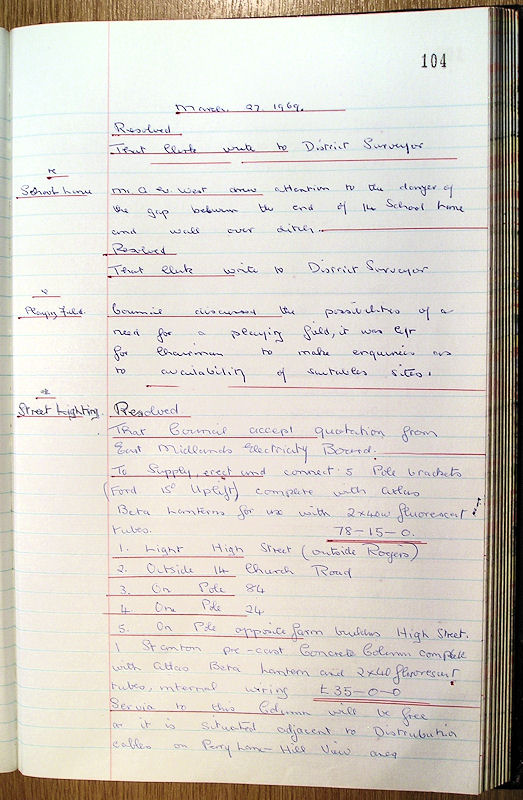 104
March 27. 1969.
Resolved
That Clerk write to District Surveyor
re
School Lane
Mr A W. West drew attention to the danger of
the gap between the end of the School Lane
and wall over ditch.
Resolved
That Clerk write to District Surveyor
re
Playing Field.
Council discussed the possibilities of a
need for a playing field, it was left
for Chairman to make enquiries as
to availability of suitable sites.
re
Street Lighting.
Resolved
That Council accept quotation from
East Midlands Electricity Board.
To Supply, erect and connect 5 Pole brackets
(Ford 15° Uplift) complete with atlas
Beta Lanterns for use with 2x40w fluorescent
tubes. 78-15-0.
1. Light High Street (outside Rogers)
2. Outside 14 Church Road
3. On Pole 84
4. On Pole 24
5. On Pole opposite farm builders High Street.
1 Stanton pre-cast Concrete Column complete
with Atlas Beta Lantern and 2x40 fluorescent
tubes, internal wiring £35-0-0
Service to this Column will be free
as it is situated adjacent to Distribution
cables on Perry Lane - Hill View area